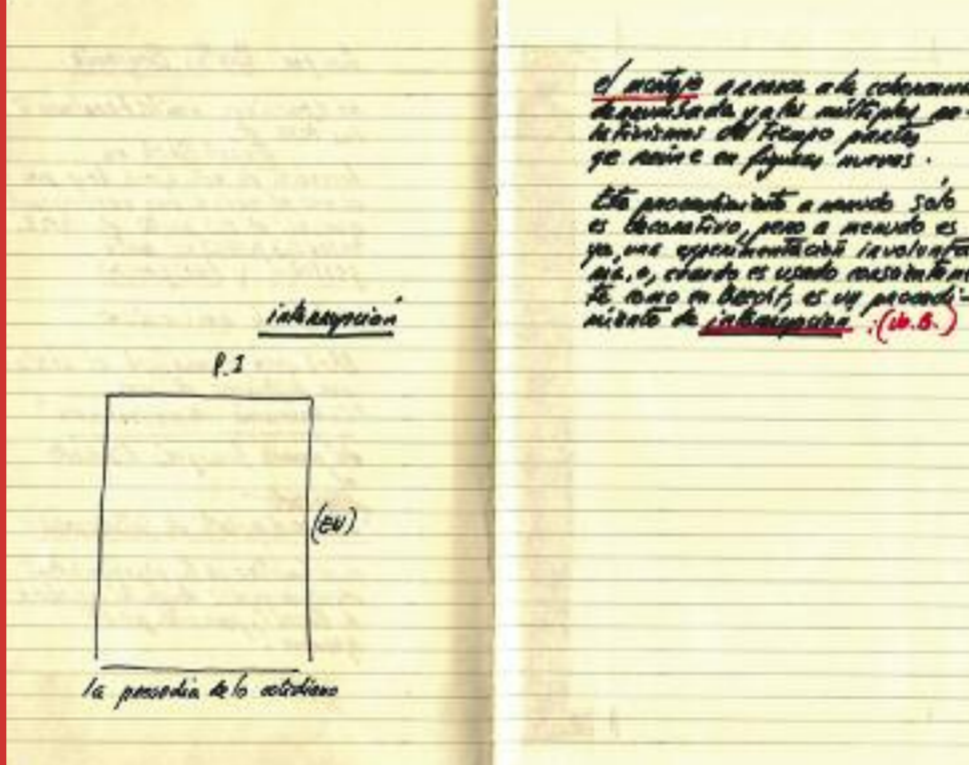 interrupción
P.I
(EV)
la parodia de lo cotidiano
el montaje arranca a la coherencia
derrumbada y a los múltiples re-
lativismos del tiempo partes
qe reúne en figuras nuevas.
Este procedimiento a menudo sólo
es decorativo, pero a menudo es
ya, una experimentación involunta
ria, o, cuando es usado conscientemen
te como en Brecht, es un procedi-
miento de interrupción. (W.B.)